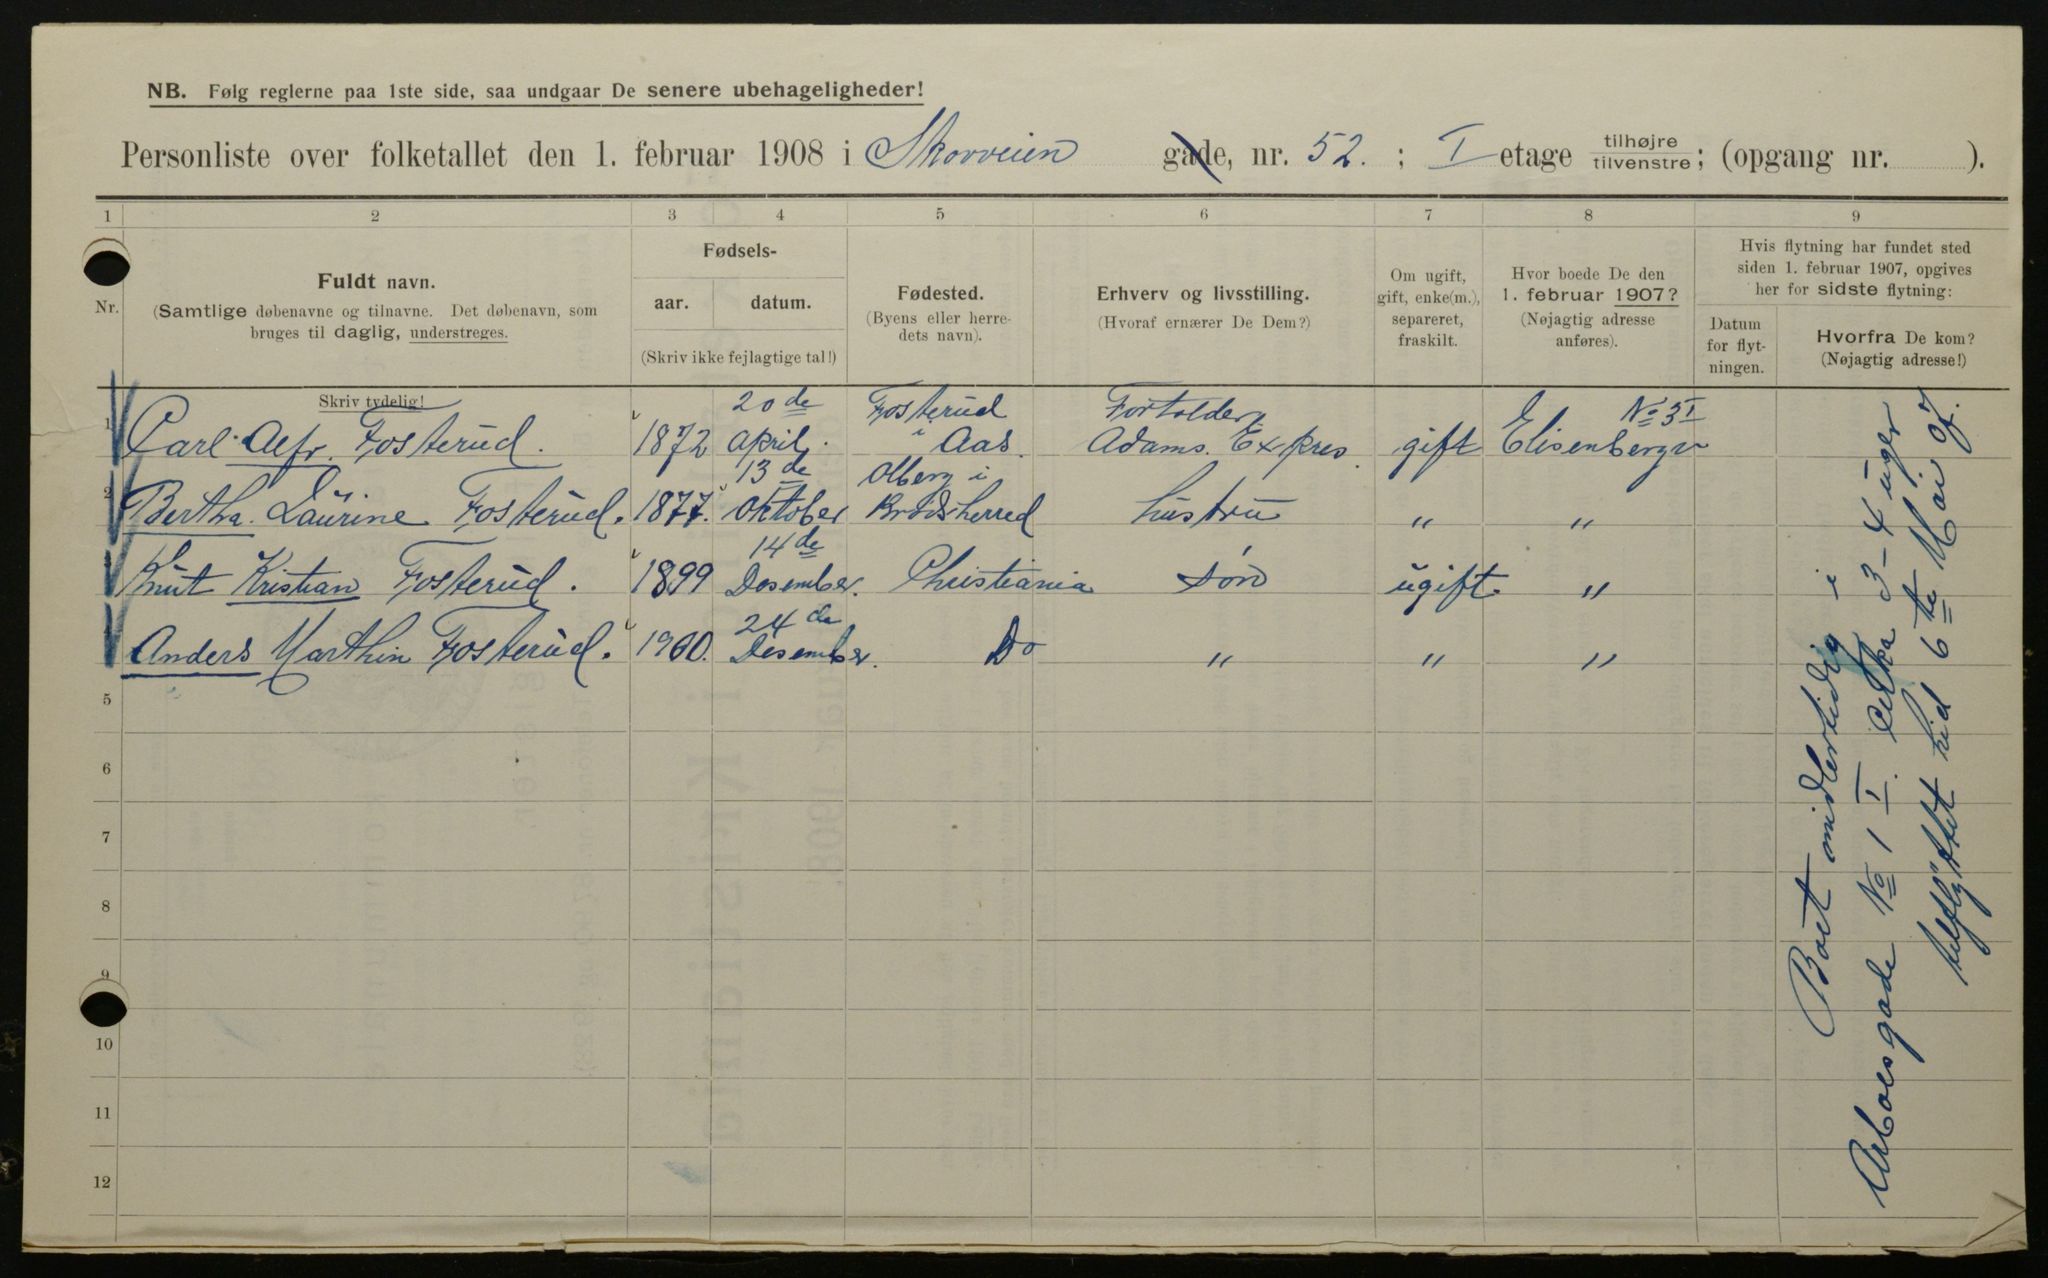 NB. Følg reglerne paa 1ste side, saa undgaar De senere ubehageligheder!
Personliste over folketallet den 1. februar 1908 i Skovveien gade, nr. 52. ; I etage tilhøjre tilvenstre; (opgang nr. ).
1 2 3 4 5 6 7 8 9
Nr.
Fuldt navn.
(Samtlige døbenavne og tilnavne. Det døbenavn, som
bruges til daglig, understreges.
Skriv tydelig!
Fødsels-
aar. datum.
(Skriv ikke fejlagtige tal!)
Fødested.
(Byens eller herre-
dets navn).
Erhverv og livsstilling.
(Hvoraf ernærer De Dem?)
Om ugift,
gift, enke(m.),
separeret,
fraskilt.
Hvor boede De den
1. februar 1907?
(Nøjagtig adresse
anføres).
Hvis flytning har fundet sted
siden 1. februar 1907, opgives
her for sidste flytning:
Datum
for flyt-
ningen.
Hvorfra De kom?
(Nøjagtig adresse!)
20de Fosterud Fortolder No 3 I
1 Carl. Alfr. Fosterud. 1872 April. i Aas. Adams. Expres. gift Elisenbergv
13de Olberg i
2 Bertha. Laurine Fosterud. 1877. Oktober Brødsherred hustru " "
14de
3 Knut Kristian Fosterud. 1899 Desember. Christiania søn ugift. "
24de
Anders Marthin Fosterud. 1900. Desember. Do " " "
5
6
7
8
9
10
11
12
Boet midlertidig i
Arboesgade No 1 I. cirka 3-4 uger
hid 6te Mai 07.